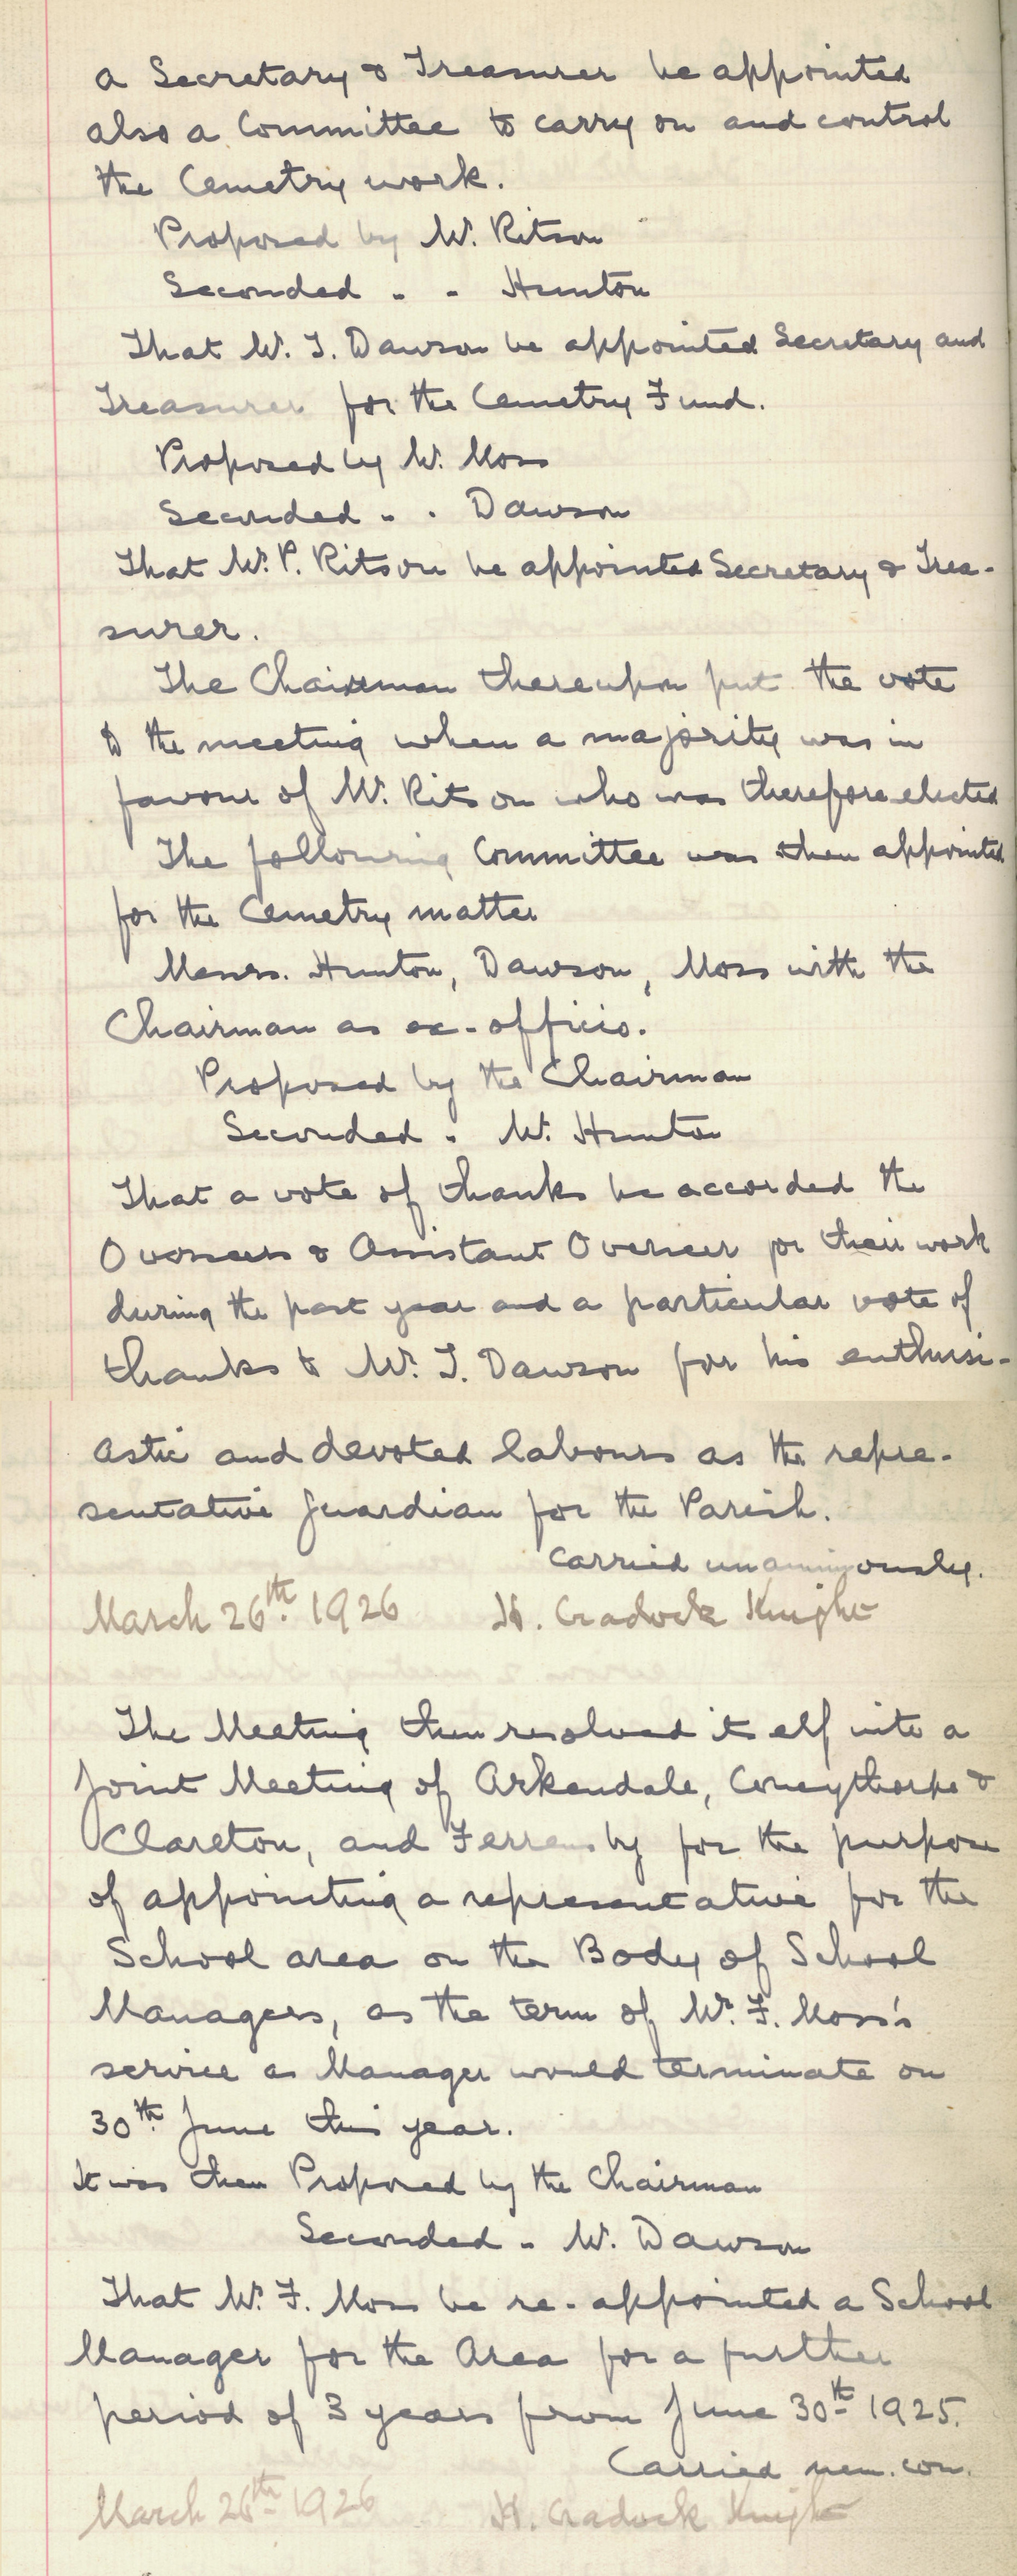 a Secretary & Treasurer be appointed
also a Committee to carry on and control
the Cemetry work.
Proposed by Mr. Ritson
Seconded " " Hunton
That Mr. T. Dawson be appointed Secretary and
Treasurer for the Cemetry Fund.
Proposed by Mr. Moss
Seconded " " Dawson
That Mr. P. Ritson be appointed Secretary & Trea-
surer.
The Chairman thereupon put the vote
to the meeting when a majority was in
favour of Mr. Ritson who was therefore elected
The following Committee was then appointed
for the Cemetry matter
Messrs. Hunton, Dawson, Moss with the
Chairman as ex-officio.
Proposed by the Chairman
Seconded " Mr. Hunton
That a vote of thanks be accorded the
Overseers & Assistant Overseer for their work
during the past year and a particular vote of
thanks to Mr. T. Dawson for his enthusi-
astic and devoted labours as the repre-
sentative Guardian for the Parish.
Carried unanimously.
March 26th. 1926 H. Cradock Knight
The Meeting then resolved itself into a
Joint Meeting of Arkendale, Coneythorpe &
Clareton, and Ferrensby for the purpose
of appointing a representative for the
School area on the Body of School
Managers, as the term of Mr. F. Moss's
service as Manager would terminate on
30th. June this year.
It was then Proposed by the Chairman
Seconded " Mr. Dawson
That Mr. F. Moss be re-appointed a School
Manager for the Area for a further
period of 3 years from June 30th 1925.
Carried nem. con.
March 26th 1926 H. Cradock Knight